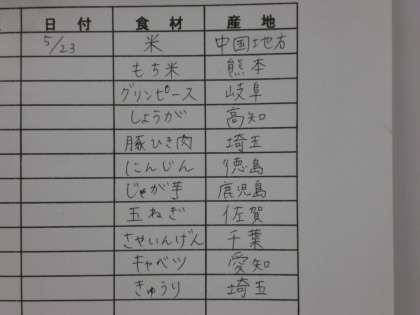 日付 食材 産地
5/23 米 中国地方
もち米 熊本
グリンピース 岐阜
しょうが 高知
豚ひき肉 埼玉
にんじん 徳島
じゃが芋 鹿児島
玉ねぎ 佐賀
さやいんげん 千葉
キャベツ 愛知
きゅうり 埼玉